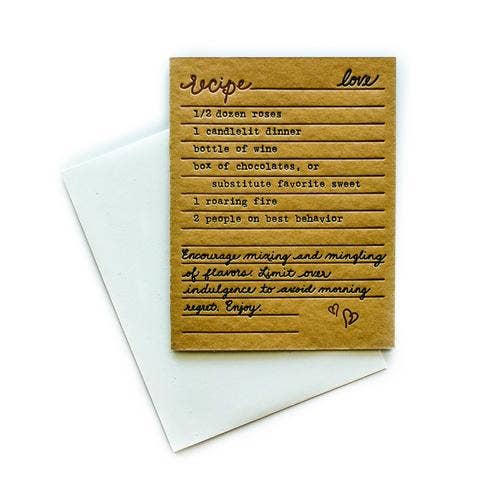 recipe love
1/2 dozen roses
1 candlelit dinner
bottle of wine
box of chocolates, or
substitute favorite sweet
1 roaring fire
2 people on best behavior
Encourage mixing and mingling
of flavors. Limit over
indulgence to avoid morning
regret. Enjoy.